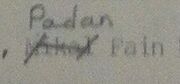 Padan
, Pain